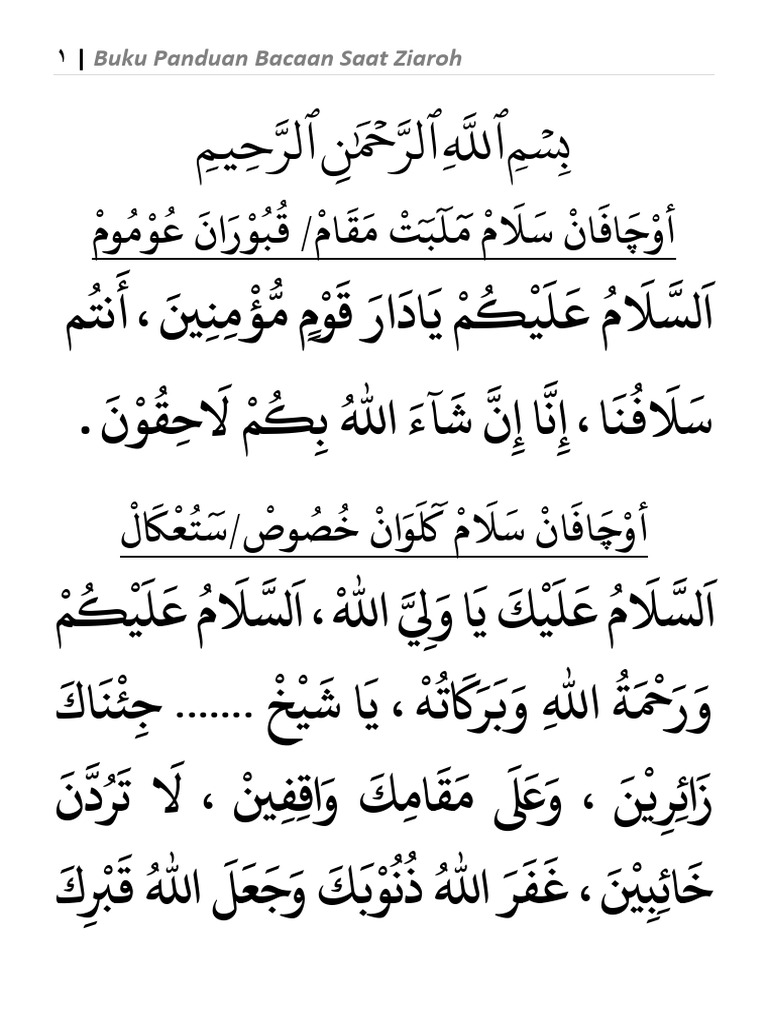 ١ | Buku Panduan Bacaan Saat Ziaroh
بِسْمِ ٱللَّهِ ٱلرَّحْمَٰنِ ٱلرَّحِيمِ
أوْچَافَانْ سَلَامْ مَٓلَبَتْ مَقَامْ/ قُبُوْرَانَ عُوْمُومْ
اَلسَّلَامُ عَلَيْكُمْ يَادَارَ قَوْمٍ مُّؤْمِنِينَ ، أَنتُم
سَلَافُنَا ، إِنَّا إِنَّ شَآءَ اللهُ بِكُمْ لَاحِقُوْنَ .
أوْچَافَانْ سَلَامْ كَٓلَوَانْ خُصُوصْ/سَٓتُعْكَالْ
اَلسَّلَامُ عَلَيْكَ يَا وَلِيَّ اللهْ ، اَلسَّلَامُ عَلَيْكُمْ
وَرَحْمَةُ اللهِ وَبَرَكَاتُهْ ، يَا شَيْخْ ....... جِئْنَاكَ
زَائِرِيْنَ ، وَعَلَى مَقَامِكَ وَاقِفِينْ ، لَا تَرُدَّنَ
خَائِبِيْنَ ، غَفَرَ اللهُ ذُنُوْبَكَ وَجَعَلَ اللهُ قَبْرِكَ